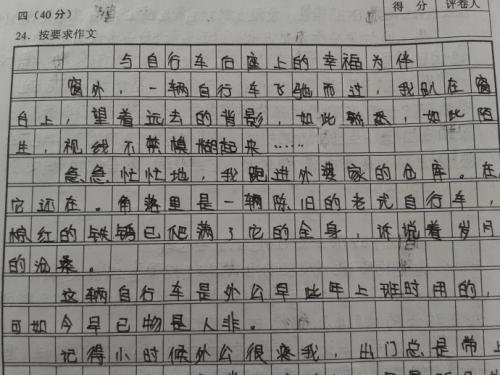 四（40分）
得 分 评卷人
24. 按要求作文
与自行车后座上的幸福为伴
窗外，一辆自行车飞驰而过，我趴在窗
台上，望着远去的背影，如此熟悉，如此陌
生，视线不禁模糊起来……
急急忙忙地，我跑进外婆家的仓库。在，
它还在。角落里是一辆陈旧的老式自行车，
棕红的铁锈已爬满了它的全身，诉说着岁月
的沧桑。
这辆自行车是外公早些年上班时用的，
可如今早已物是人非。
记得小时候外公很疼我，出门总是带上